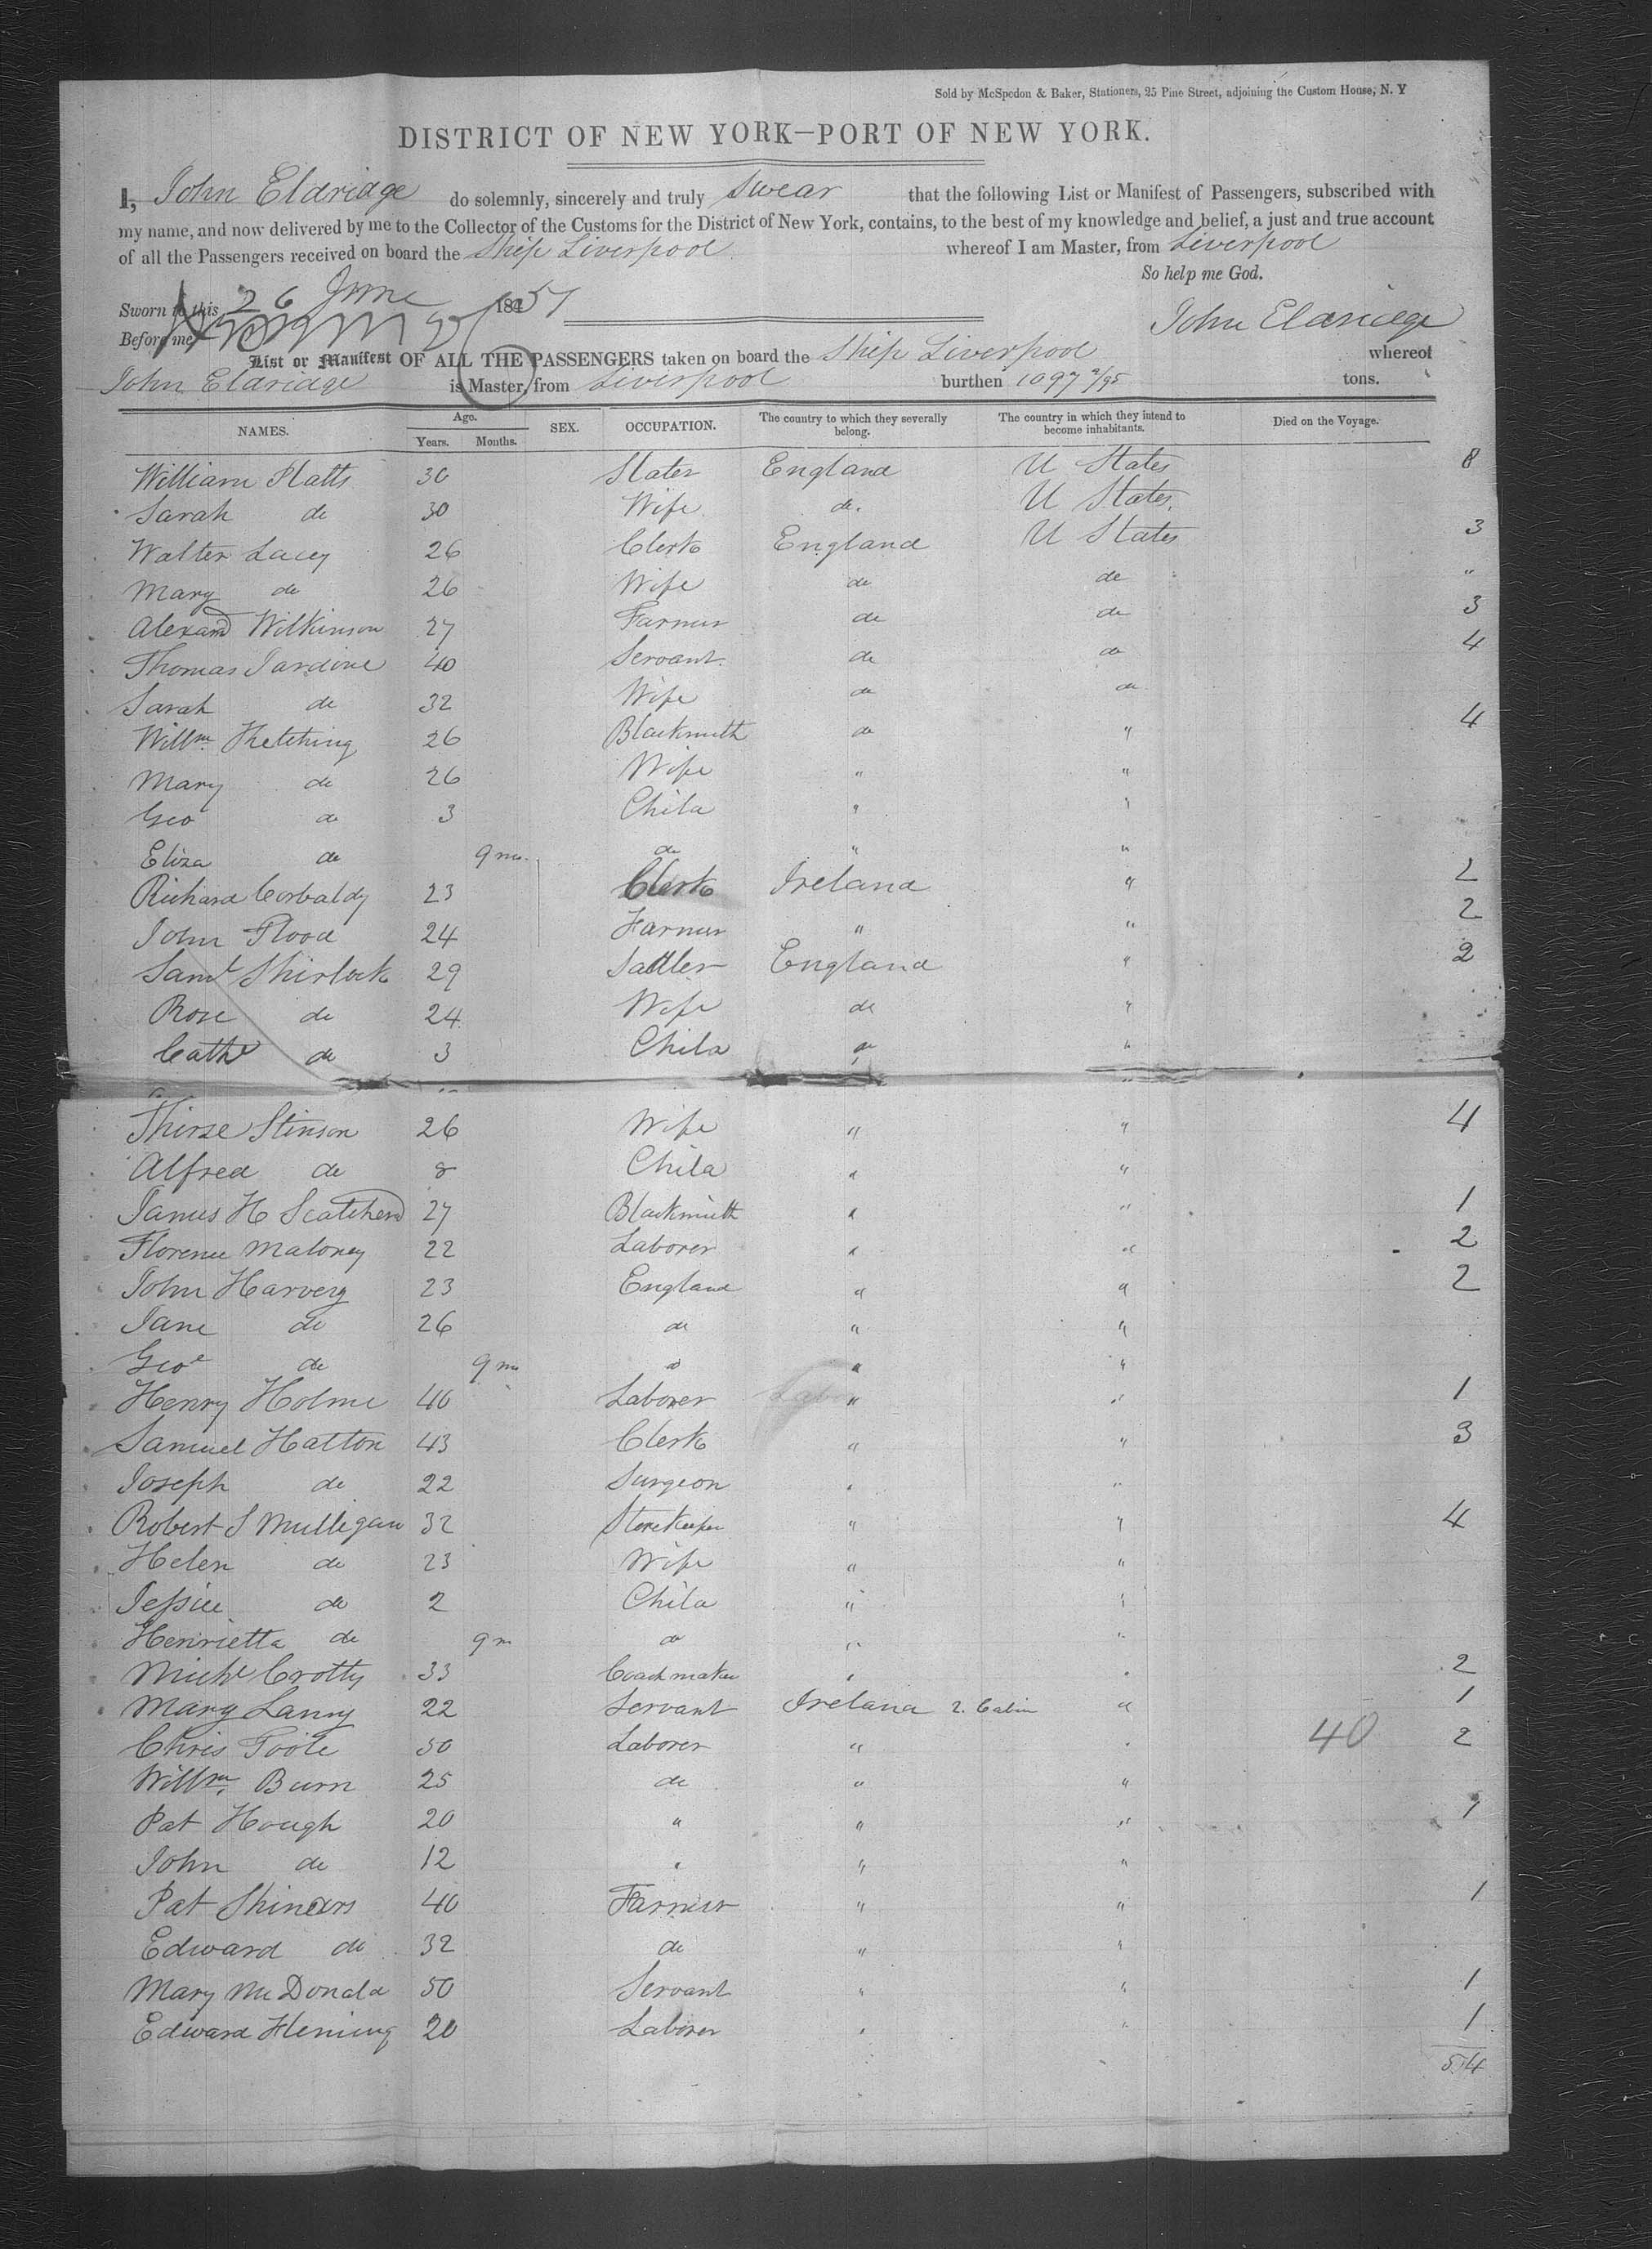 Sold by McSpedon & Baker, Stationers, 25 Pine Street, adjoining the Custom House, N. Y
DISTRICT OF NEW YORK—PORT OF NEW YORK.
I, John Eldridge do solemnly, sincerely and truly Swear that the following List or Manifest of Passengers, subscribed with
my name, and now delivered by me to the Collector of the Customs for the District of New York, contains, to the best of my knowledge and belief, a just and true account
of all the Passengers received on board the Ship Liverpool whereof I am Master, from Liverpool
So help me God.
Sworn to this 26 June 1851
Before me
John Eldridge
List or Manifest OF ALL THE PASSENGERS taken on board the Ship Liverpool whereof
John Eldridge is Master, from Liverpool burthen 1097 2/95 tons.
NAMES. Age. Years. Months. SEX. OCCUPATION. The country to which they severally belong. The country in which they intend to become inhabitants. Died on the Voyage.
William Platts 30 Slater England U States 8
Sarah do 30 Wife do. U States.
Walter Lacey 26 Clerk England U States 3
Mary do 26 Wife do do "
Alexand Wilkinson 27 Farmer do do 3
Thomas Jardine 40 Servant do do 4
Sarah do 32 Wife do do
Willm. Ketching 26 Blacksmith do " 4
Mary do 26 Wife " "
Geo do 3 Child " "
Eliza do 9 mos. do " "
Richard Corbaldy 23 Clerk Ireland " 2
John Flood 24 Farmer " " 2
Saml Shirlock 29 Sadler England " 2
Rose do 24 Wife do "
Cathe do 3 Child do "
Thirze Stinson 26 Wife " " 4
Alfred do 8 Child " "
James H Scatcherd 27 Blacksmith " " 1
Florence Maloney 22 Laborer " " 2
John Harvey 23 England " " 2
Jane do 26 do " "
Geoe do 9 mo do " "
Henry Holme 40 Laborer " " 1
Samuel Hatton 43 Clerk " " 3
Joseph do 22 Surgeon " "
Robert S Mulligan 32 Storekeeper " " 4
Helen do 23 Wife " "
Jessie do 2 Child " "
Henrietta do 9 m do " "
Michl Crotty 33 Coachmaker " " 2
Mary Lanny 22 Servant Ireland 2. Cabin " 1
Chris Toole 50 Laborer " " 40 2
Willm. Burn 25 do " "
Pat Hough 20 " " " 1
John do 12 " " "
Pat Shinors 40 Farmer " " 1
Edward do 32 do " "
Mary McDonald 50 Servant " " 1
Edward Fleming 20 Laborer " " 1
54